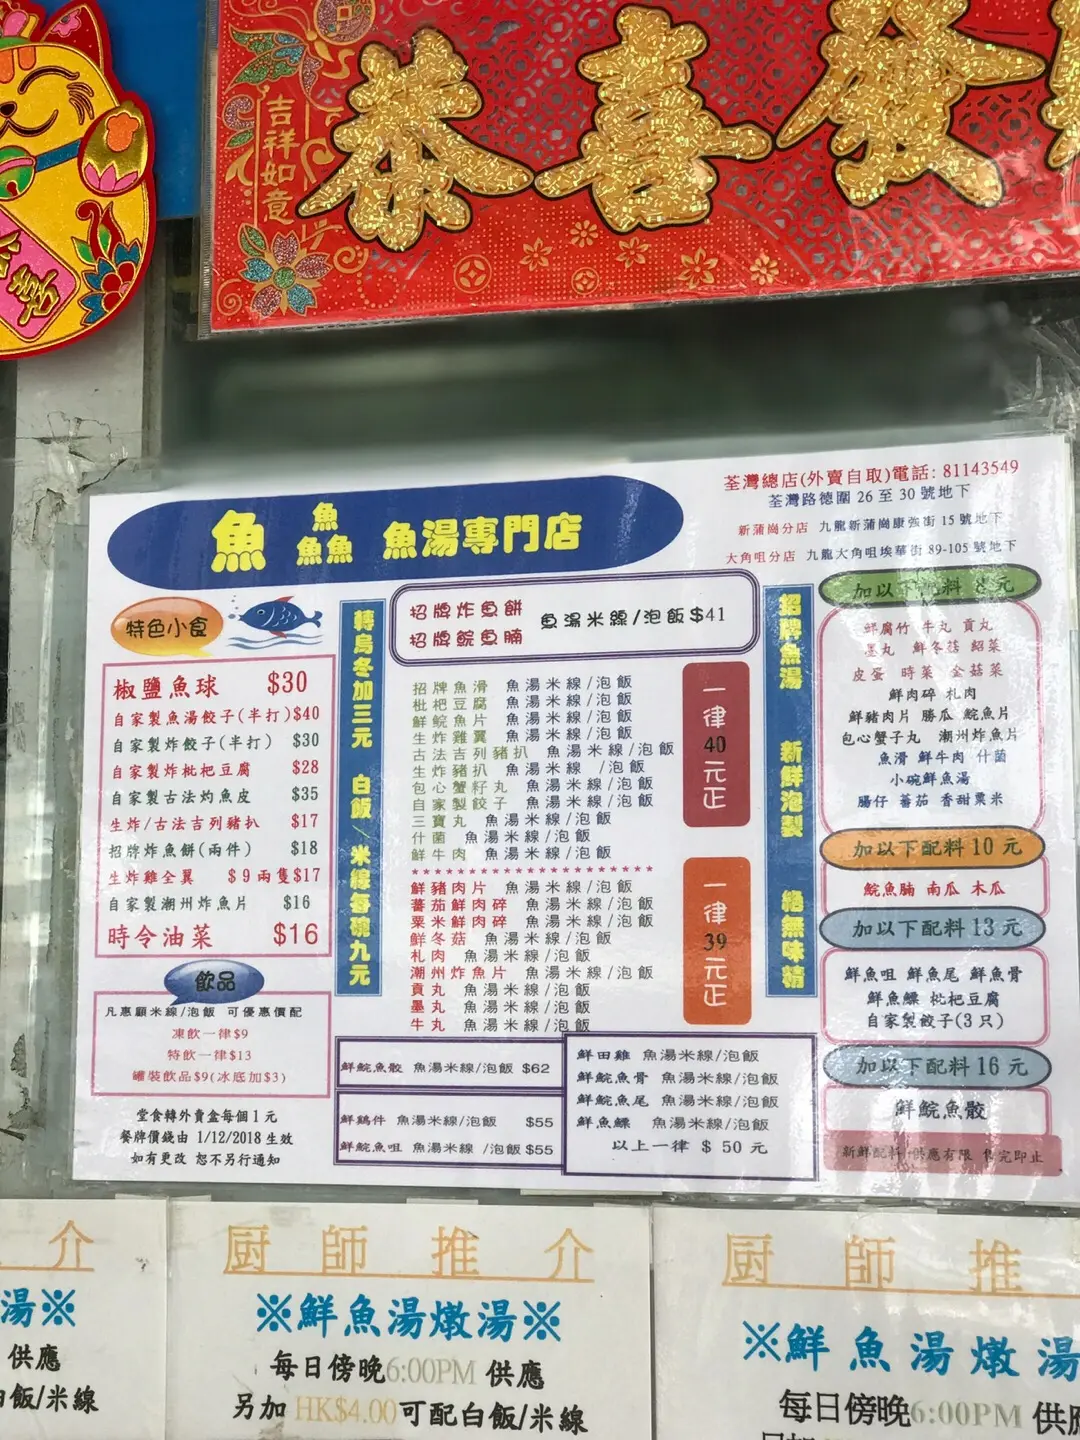 恭喜發
吉祥如意
魚 魚魚魚 魚湯專門店
荃灣總店(外賣自取)電話: 81143549
荃灣路德圍 26 至 30 號地下
新蒲崗分店 九龍新蒲崗康強街 15 號地下
大角咀分店 九龍大角咀埃華街 89-105 號地下
特色小食
椒鹽魚球 $30
自家製魚湯餃子(半打) $40
自家製炸餃子(半打) $30
自家製炸枇杷豆腐 $28
自家製古法灼魚皮 $35
生炸/古法吉列豬扒 $17
招牌炸魚餅(兩件) $18
生炸雞全翼 $9 兩隻$17
自家製潮州炸魚片 $16
時令油菜 $16
飲品
凡惠顧米線/泡飯 可優惠價配
凍飲一律$9
特飲一律$13
罐裝飲品$9(冰底加$3)
堂食轉外賣盒每個 1 元
餐牌價錢由 1/12/2018 生效
如有更改 恕不另行通知
轉烏冬加三元 白飯/米線每碗九元
招牌炸魚餅
招牌鯇魚腩
魚湯米線/泡飯 $41
招牌魚滑 魚湯米線/泡飯
枇杷豆腐 魚湯米線/泡飯
鮮鯇魚片 魚湯米線/泡飯
生炸雞翼 魚湯米線/泡飯
古法吉列豬扒 魚湯米線/泡飯
生炸豬扒 魚湯米線 /泡飯
包心蟹籽丸 魚湯米線/泡飯
自家製餃子 魚湯米線/泡飯
三寶丸 魚湯米線/泡飯
什菌 魚湯米線/泡飯
鮮牛肉 魚湯米線/泡飯
一律40元正
鮮豬肉片 魚湯米線/泡飯
蕃茄鮮肉碎 魚湯米線/泡飯
粟米鮮肉碎 魚湯米線/泡飯
鮮冬菇 魚湯米線/泡飯
札肉 魚湯米線/泡飯
潮州炸魚片 魚湯米線/泡飯
貢丸 魚湯米線/泡飯
墨丸 魚湯米線/泡飯
牛丸 魚湯米線/泡飯
一律39元正
鮮鯇魚骰 魚湯米線/泡飯 $62
鮮鷄件 魚湯米線/泡飯 $55
鮮鯇魚咀 魚湯米線 /泡飯 $55
鮮田雞 魚湯米線/泡飯
鮮鯇魚骨 魚湯米線/泡飯
鮮鯇魚尾 魚湯米線/泡飯
鮮魚鰾 魚湯米線/泡飯
以上一律 $ 50 元
招牌魚湯 新鮮泡製 絕無味精
加以下配料 8 元
鮮腐竹 牛丸 貢丸
墨丸 鮮冬菇 紹菜
皮蛋 時菜 金菇菜
鮮肉碎 札肉
鮮豬肉片 勝瓜 鯇魚片
包心蟹子丸 潮州炸魚片
魚滑 鮮牛肉 什菌
小碗鮮魚湯
腸仔 蕃茄 香甜粟米
加以下配料 10 元
鯇魚腩 南瓜 木瓜
加以下配料 13 元
鮮魚咀 鮮魚尾 鮮魚骨
鮮魚鰾 枇杷豆腐
自家製餃子(3 只)
加以下配料 16 元
鮮鯇魚骰
新鮮配料 供應有限 售完即止
介
湯※
供應
白飯/米線
厨師推介
※鮮魚湯燉湯※
每日傍晚6:00PM 供應
另加 HK$4.00可配白飯/米線
厨師推
※鮮魚湯燉湯
每日傍晚6:00PM 供應